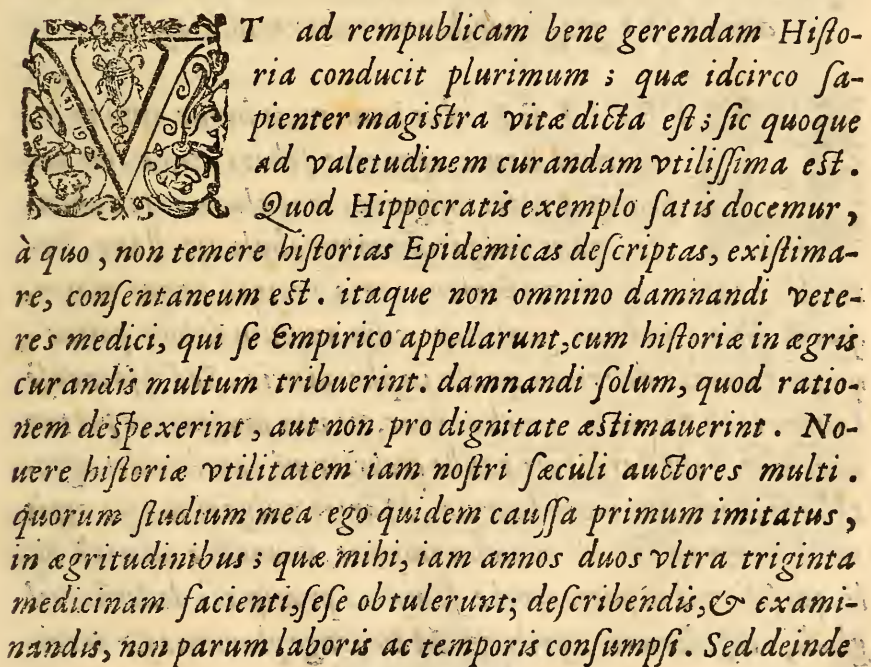 VT ad rempublicam bene gerendam Histo-
ria conducit plurimum ; quæ idcirco sa-
pienter magistra vitæ dicta est ; sic quoque
ad valetudinem curandam vtilissima est.
Quod Hippocratis exemplo satis docemur,
à quo, non temere historias Epidemicas descriptas, existima-
re, consentaneum est. itaque non omnino damnandi vete-
res medici, qui se Empirico appellarunt, cum historiæ in ægris
curandis multum tribuerint. damnandi solum, quod ratio-
nem despexerint, aut non pro dignitate æstimauerint. No-
uere historiæ vtilitatem iam nostri sæculi auctores multi.
quorum studium mea ego quidem caussa primum imitatus,
in ægritudinibus ; quæ mihi, iam annos duos vltra triginta
medicinam facienti, sese obtulerunt; describendis, & exami-
nandis, non parum laboris ac temporis consumpsi. Sed deinde